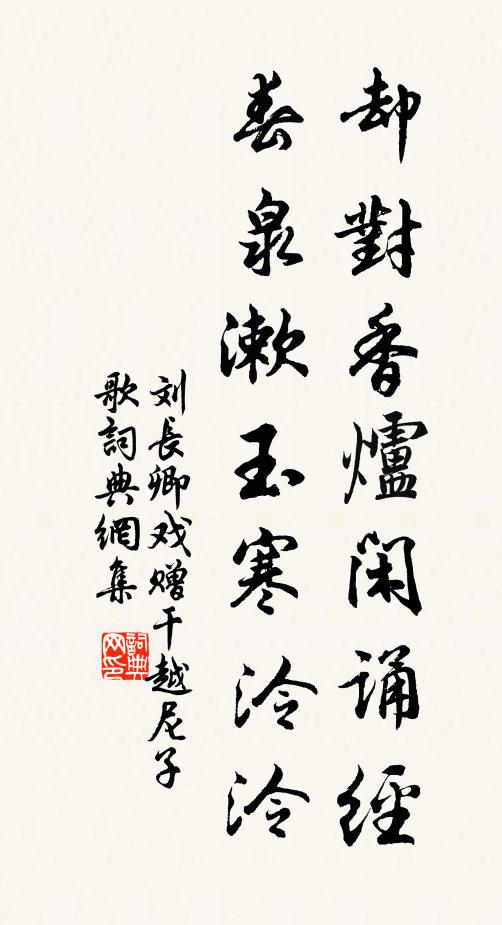 却對香爐閑誦經
春泉漱玉寒泠泠
刘長卿戏贈干越尼子
歌詞典網集
詞典网印